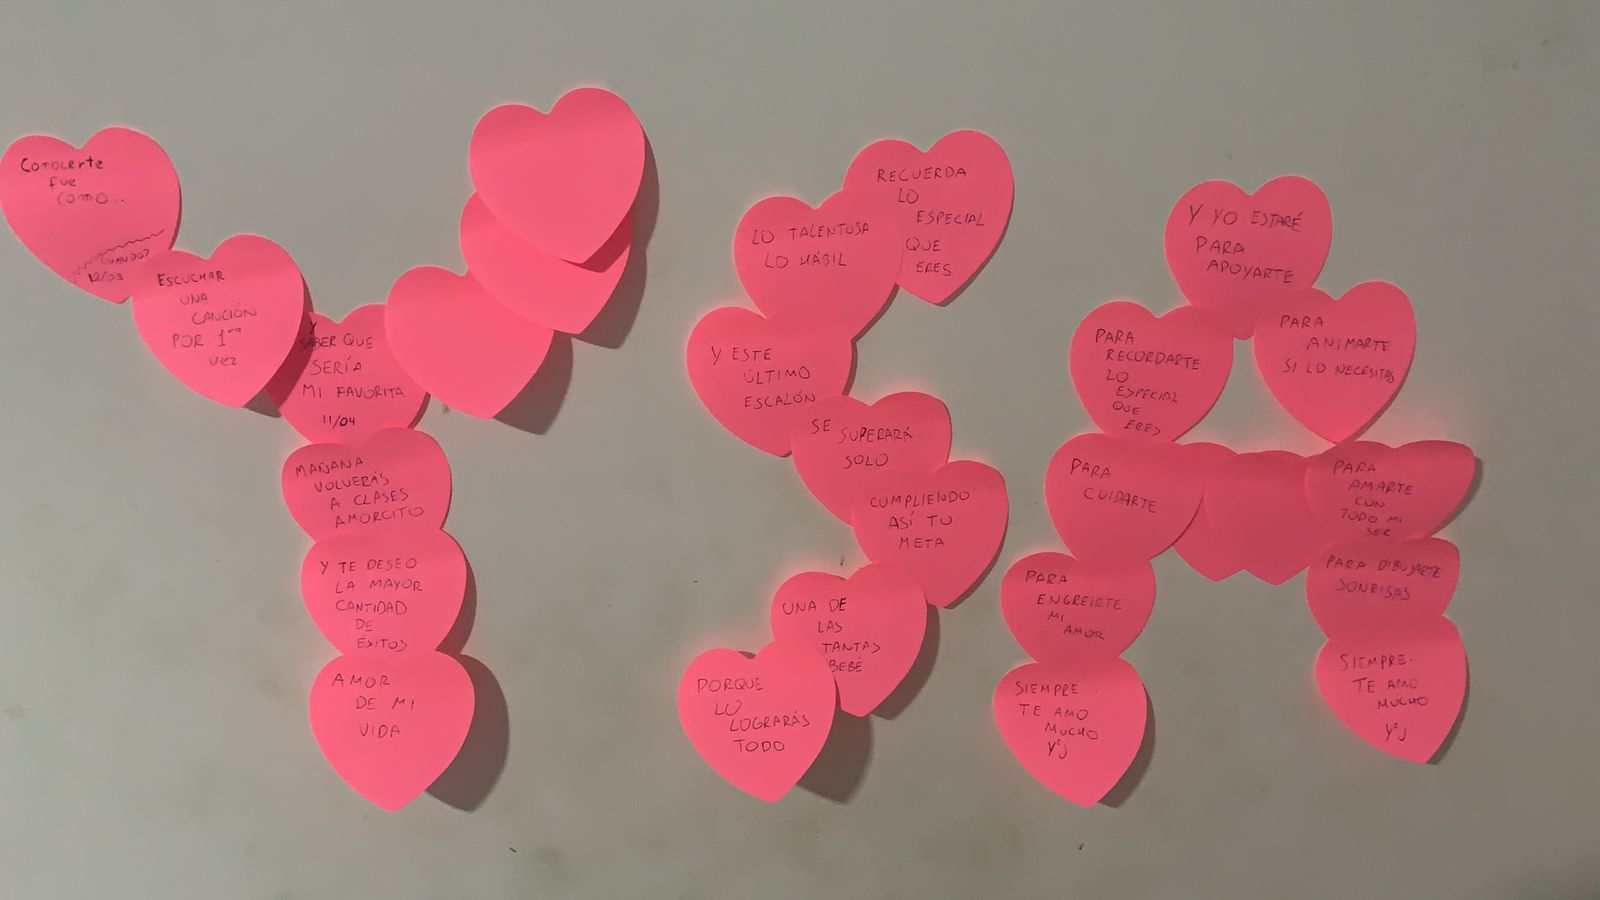 Conocerte
fue
como...
CUANDO?
12/03
ESCUCHAR
UNA
CANCIÓN
POR 1ra
vez
Y
SABER QUE
SERÍA
MI FAVORITA
11/04
MAÑANA
VOLVERÁS
A CLASES
AMORCITO
Y TE DESEO
LA MAYOR
CANTIDAD
DE
ÉXITOS
AMOR
DE MI
VIDA
RECUERDA
LO
ESPECIAL
QUE
ERES
LO TALENTOSA
LO HÁBIL
Y ESTE
ÚLTIMO
ESCALÓN
SE SUPERARÁ
SOLO
CUMPLIENDO
ASÍ TU
META
UNA DE
LAS
TANTAS
BEBÉ
PORQUE
LO
LOGRARÁS
TODO
Y YO ESTARÉ
PARA
APOYARTE
PARA
RECORDARTE
LO
ESPECIAL
QUE
ERES
PARA
ANIMARTE
SI LO NECESITAS
PARA
CUIDARTE
PARA
AMARTE
CON
TODO MI
SER
PARA
ENGREIRTE
MI
AMOR
PARA DIBUJARTE
SONRISAS
SIEMPRE...
TE AMO
MUCHO
Y²J
SIEMPRE...
TE AMO
MUCHO
Y²J